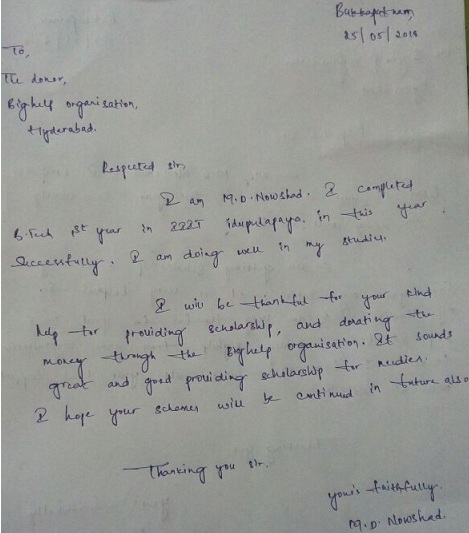 Bukkapatnam,
25/05/2018
To,
The donor,
Bighelp organisation,
Hyderabad.
Respected sir,
I am M.D. Nowshad. I completed
B.Tech 1st year in IIIT idupulapaya. in this year
Successfully. I am doing well in my studies.
I will be thankful for your kind
help for providing scholarship, and donating the
money through the Bighelp organisation. It sounds
great and good providing scholarship for needies.
I hope your schemes will be continued in future also
Thanking you sir.
your's faithfully.
M.D. Nowshad.